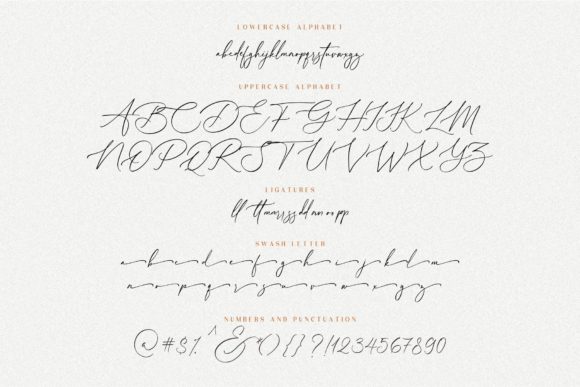 LOWERCASE ALPHABET
abcdefghijklmnopqrstuvwxyz
UPPERCASE ALPHABET
ABCDEFGHIJKLM
NOPQRSTUVWXYZ
LIGATURES
ll tt mm rr ss dd nn oo pp
SWASH LETTER
a b c d e f g h i j k l m
n o p q r s t u v w x y z
NUMBERS AND PUNCTUATION
@#$%^&*(){}?!1234567890